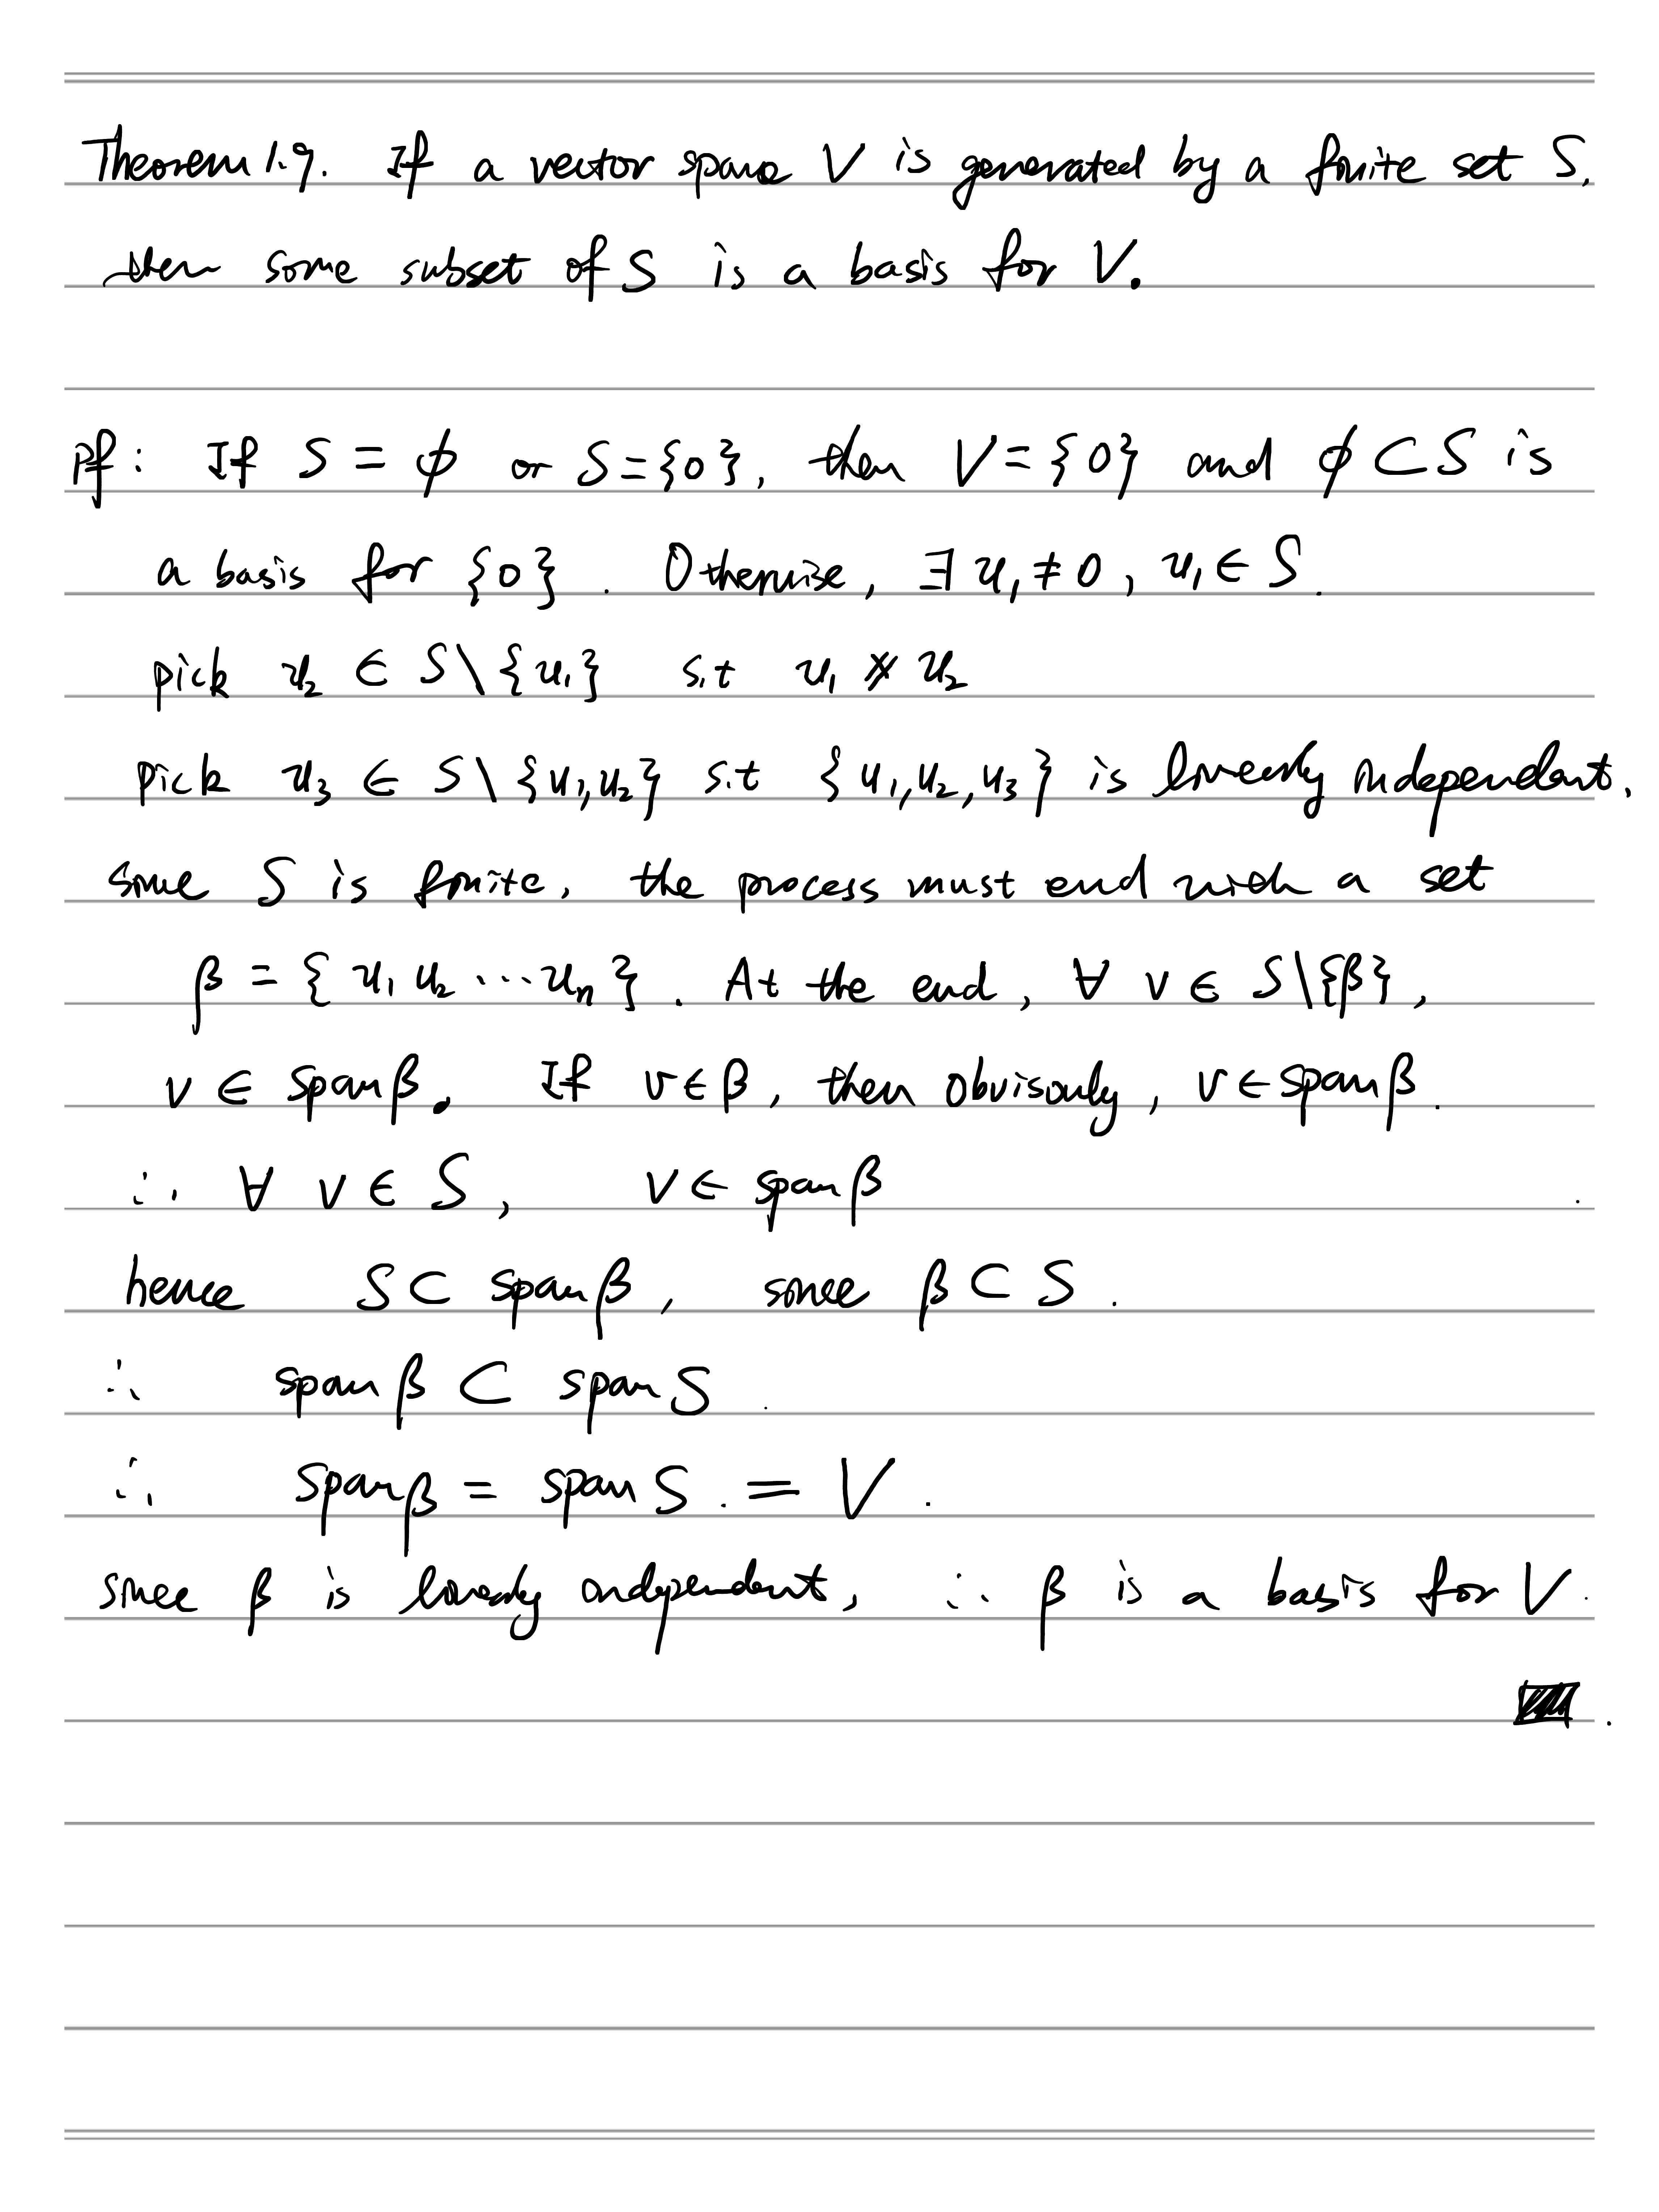 Theorem 1.9. If a vector space V is generated by a finite set S,
then some subset of S is a basis for V.
Pf: If S = ϕ or S={0}, then V={0} and ϕ ⊂ S is
a basis for {0}. Otherwise, ∃ u₁≠0, u₁∈ S.
pick u₂ ∈ S\{u₁} s.t u₁ ∦ u₂
pick u₃ ∈ S\{u₁,u₂} s.t {u₁,u₂,u₃} is linearly independent.
since S is finite, the process must end with a set
β = {u₁ u₂ ... uₙ}. At the end, ∀ v ∈ S\{β},
v ∈ span β. If v∈β, then obvisouly, v∈span β.
∴ ∀ v ∈ S, v∈ span β
hence S ⊂ span β, since β ⊂ S.
∴ span β ⊂ span S.
∴ span β = span S. = V.
since β is linearly independent, ∴ β is a basis for V.